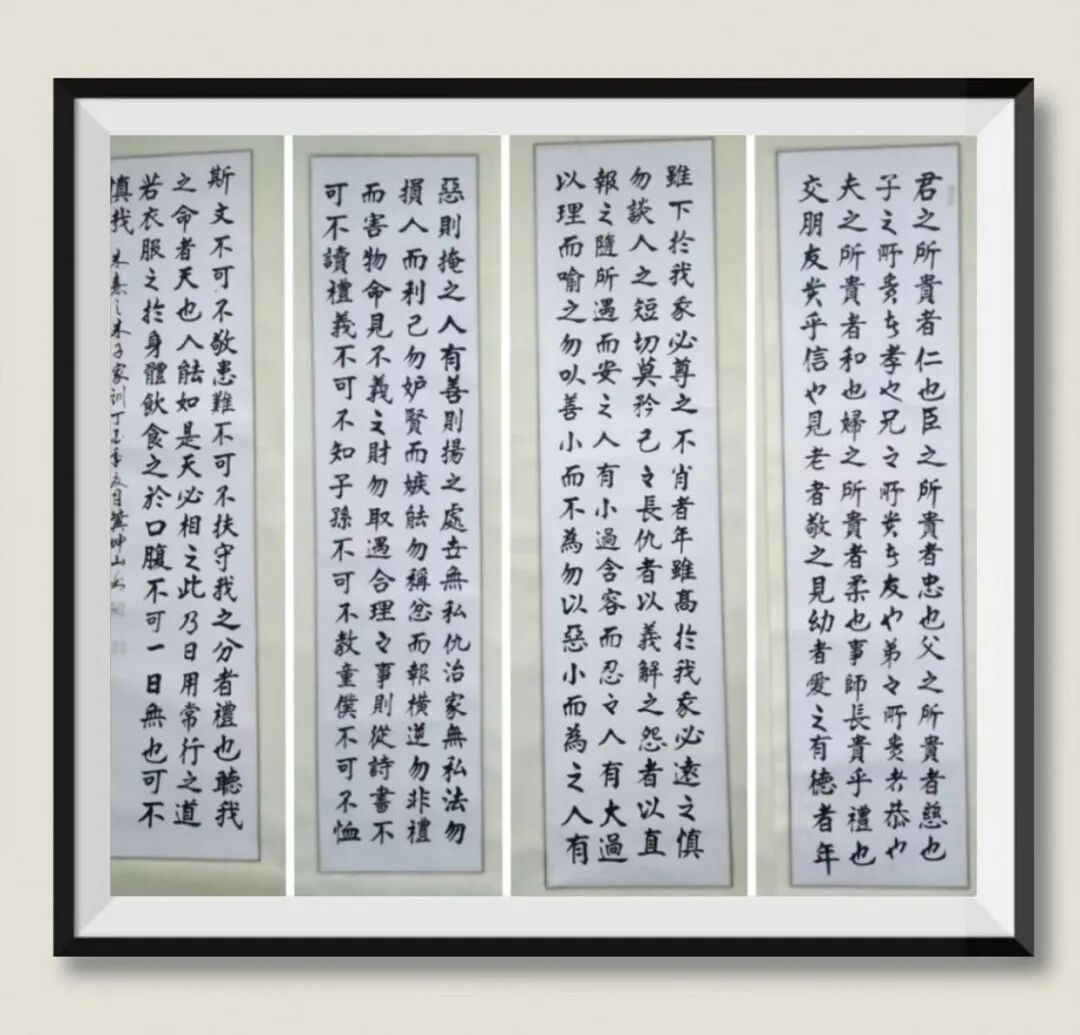 君之所貴者仁也臣之所貴者忠也父之所貴者慈也
子之所貴者孝也兄之所貴者友也弟之所貴者恭也
夫之所貴者和也婦之所貴者柔也事師長貴乎禮也
交朋友貴乎信也見老者敬之見幼者愛之有德者年
雖下於我家必尊之不肖者年雖高於我家必遠之慎
勿談人之短切莫矜己之長仇者以義解之怨者以直
報之隨所遇而安之人有小過含容而忍之人有大過
以理而喻之勿以善小而不為勿以惡小而為之人有
惡則掩之人有善則揚之處世無私仇治家無私法勿
損人而利己勿妒賢而嫉能勿稱忿而報橫逆勿非禮
而害物命見不義之財勿取遇合理之事則從詩書不
可不讀禮義不可不知子孫不可不教童僕不可不恤
斯文不可不敬患難不可不扶守我之分者禮也聽我
之命者天也人能如是天必相之此乃日用常行之道
若衣服之於身體飲食之於口腹不可一日無也可不
慎哉 朱熹之朱子家訓